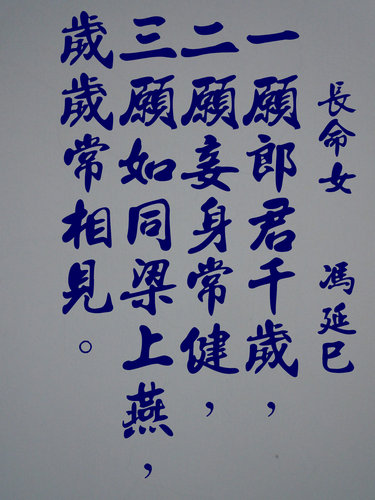 長命女 馮延巳
一願郎君千歲，
二願妾身常健，
三願如同梁上燕，
歲歲常相見。